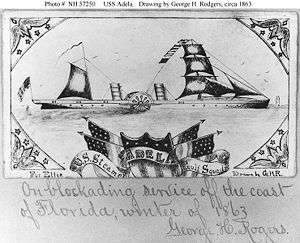 Photo # NH 57250 USS Adela Drawing by George H. Rodgers, circa 1863
U.S. Steamer ADELA Gulf Squad
Drawn by G.H.R.
On blockading service off the coast
of Florida, winter of 1863
George H. Rogers.